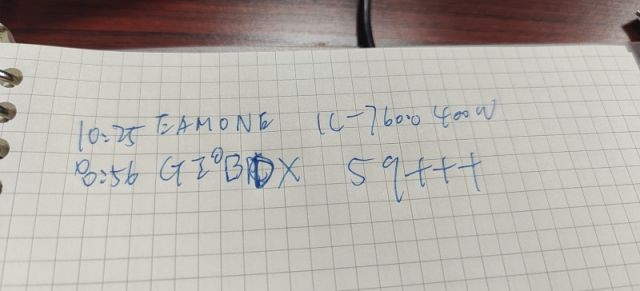 10:25 EAMONE IC-7600 400W
0:56 GI0BDX 59+++